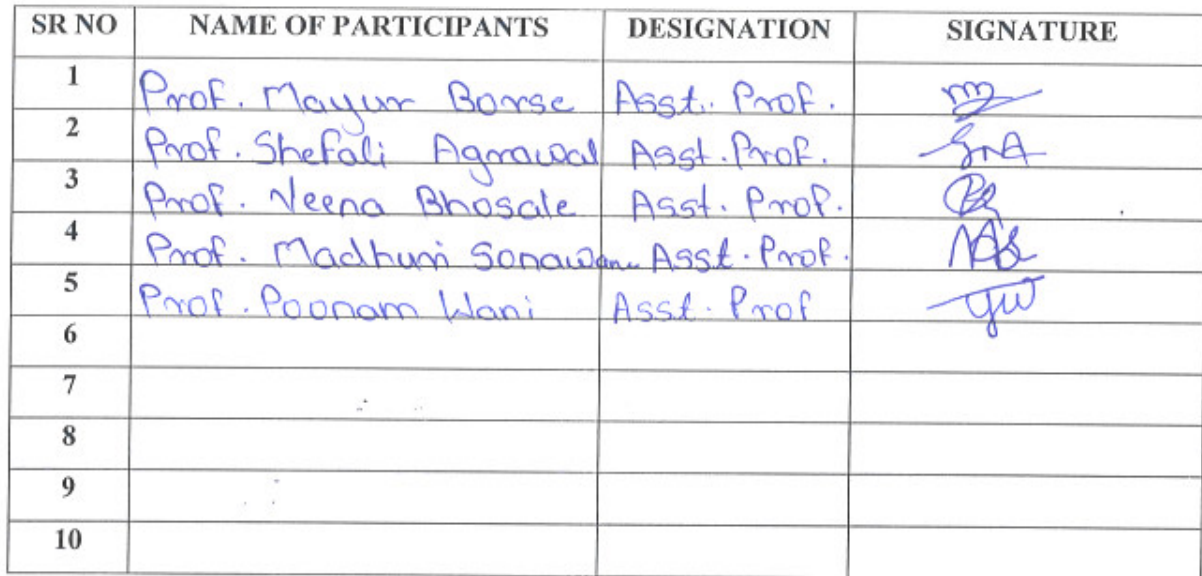 SR NO NAME OF PARTICIPANTS DESIGNATION SIGNATURE
1 Prof. Mayur Borse Asst. Prof.
2 Prof. Shefali Agrawal Asst. Prof.
3 Prof. Veena Bhosale Asst. Prof.
4 Prof. Madhuri Sonawane Asst. Prof.
5 Prof. Poonam Wani Asst. Prof
6
7
8
9
10